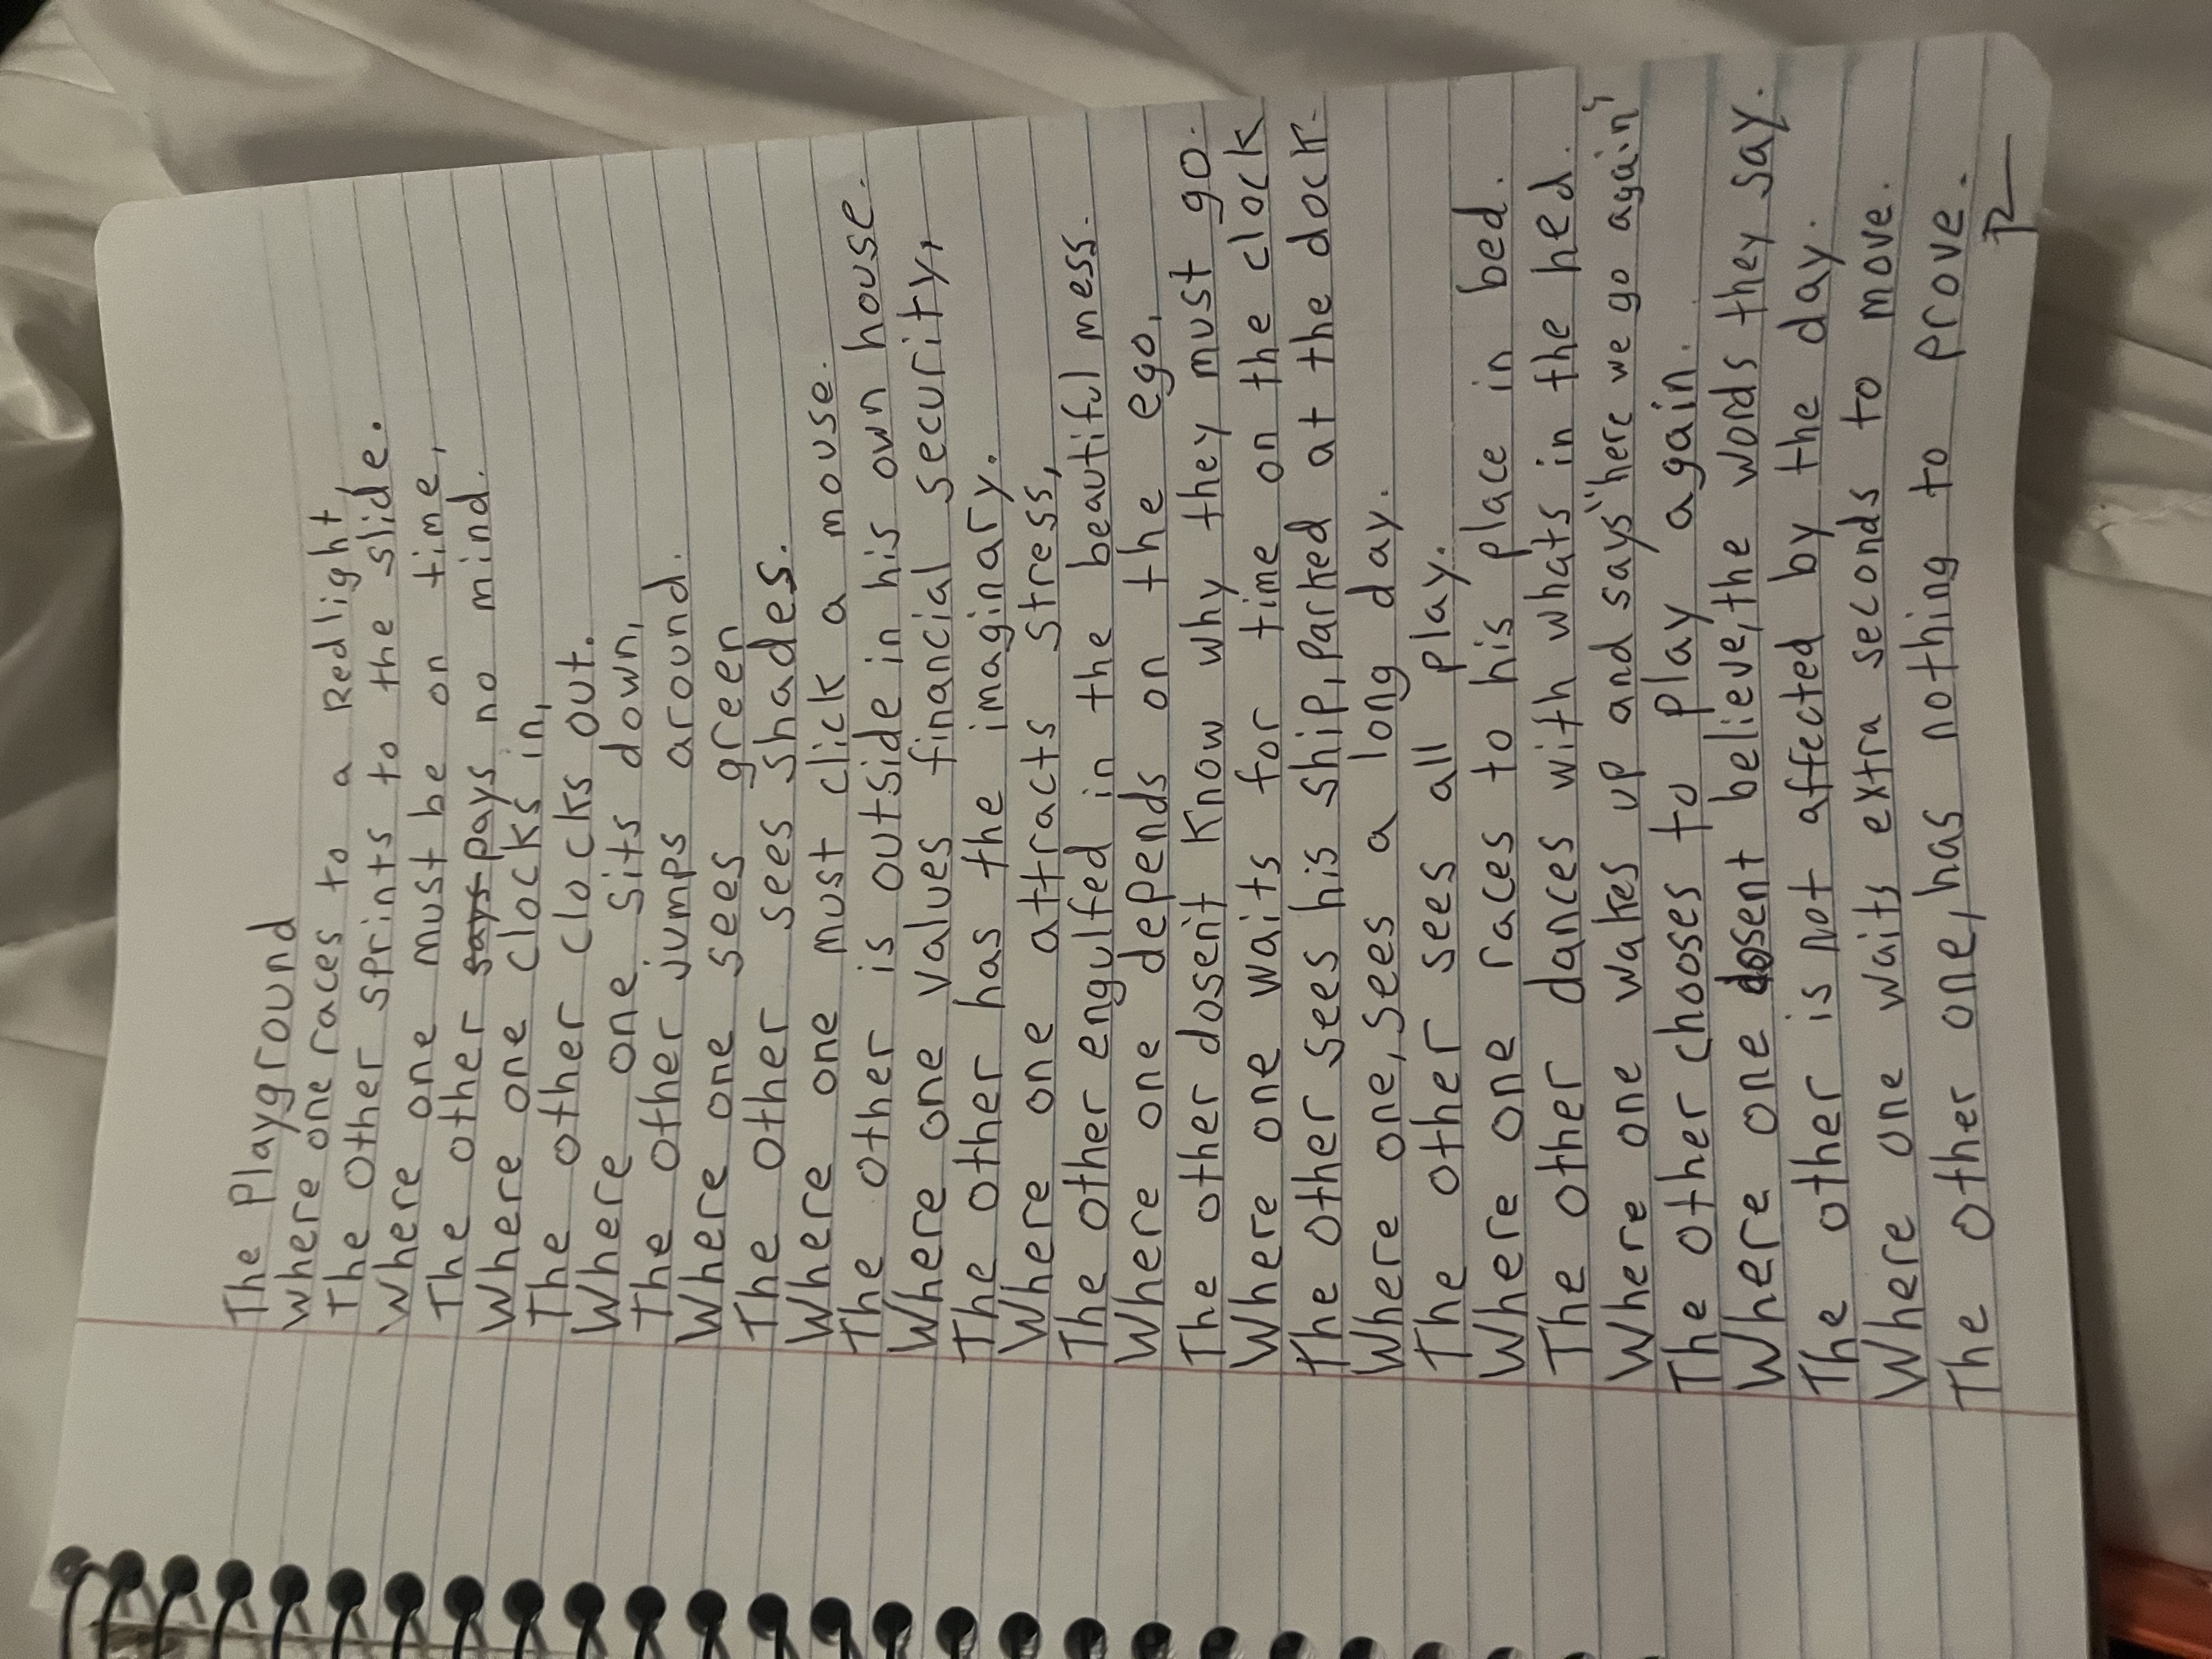 The Playground
Where one races to a Redlight,
The Other sprints to the slide.
Where one must be on time,
The other says pays no mind.
Where one clocks in,
The other clocks out.
Where one sits down,
The other jumps around.
Where one sees green
The other sees shades.
Where one must click a mouse.
The other is outside in his own house.
Where one values financial security,
The other has the imaginary.
Where one attracts stress,
The other engulfed in the beautiful mess.
Where one depends on the ego,
The other dosen't know why they must go.
Where one waits for time on the clock
The other sees his ship, parked at the dock.
Where one, sees a long day.
The other sees all play.
Where one races to his place in bed.
The other dances with what's in the hed.
Where one wakes up and says "here we go again"
The other chooses to play again.
Where one dosent believe, the words they say.
The other is not affected by the day.
Where one waits extra seconds to move.
The other one, has nothing to prove.